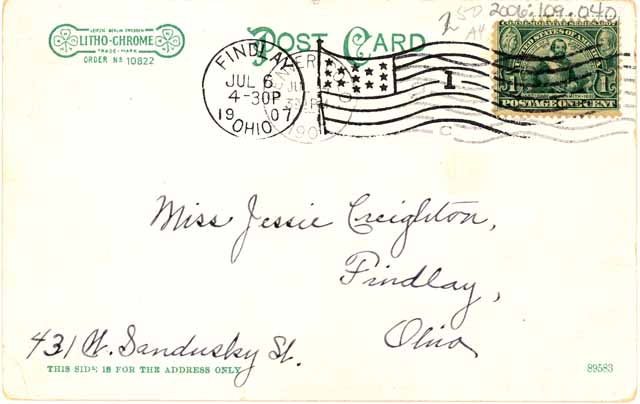 LEIPZIG BERLIN DRESDEN
LITHO-CHROME
TRADE-MARK
ORDER No 10822
POST CARD
2006.109.040
FINDLAY
JUL 6
4-30P
1907
OHIO
1
UNITED STATES OF AMERICA
1 1
POSTAGE ONE CENT
Miss Jessie Creighton,
Findlay,
Ohio
431 W. Sandusky St.
THIS SIDE IS FOR THE ADDRESS ONLY
89583